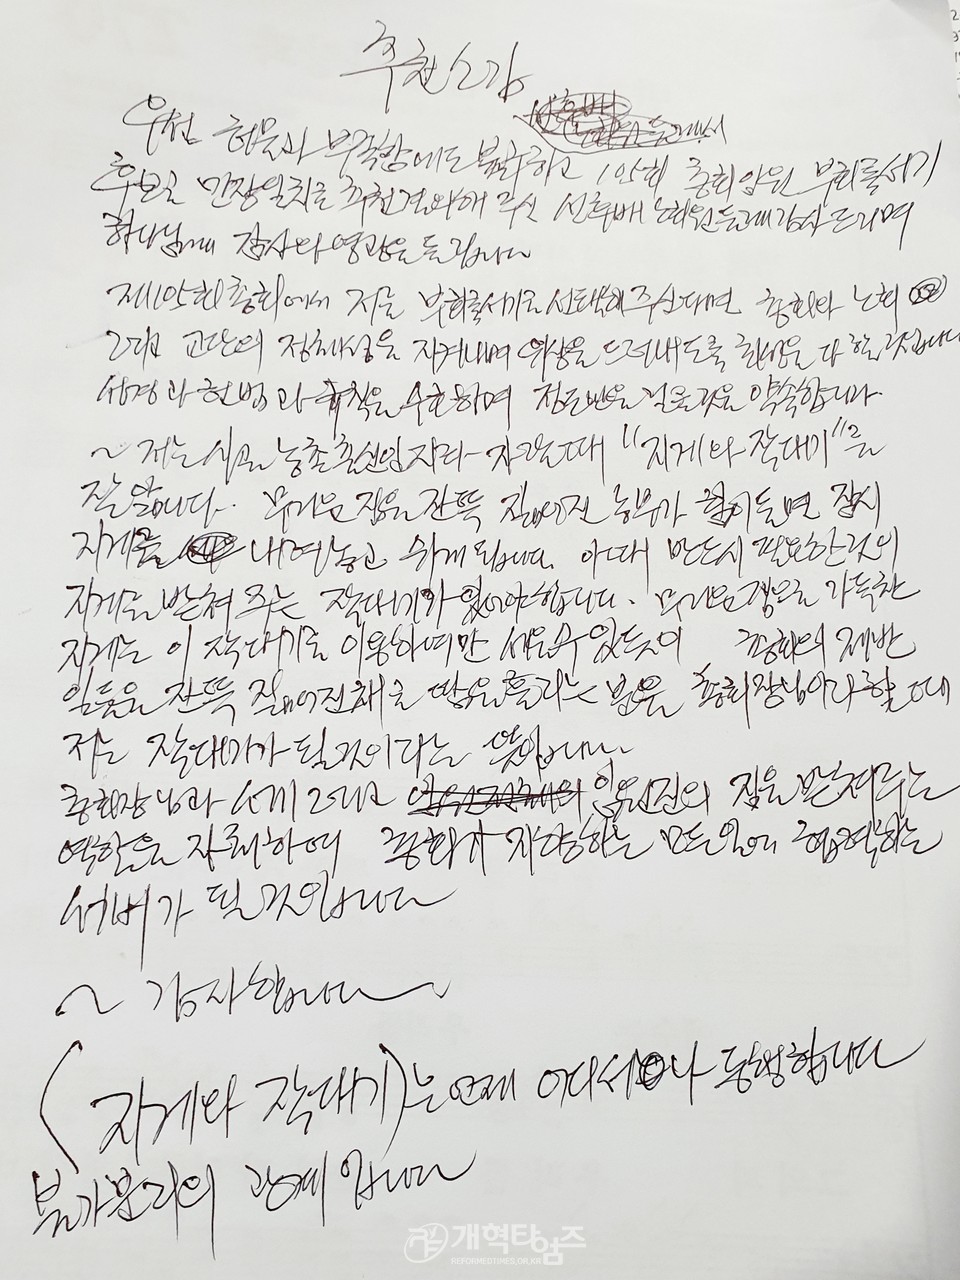 추천소감
우선 허물과 부족함에도 불구하고 총회임원 부회록서기
후보로 만장일치로 추천결의해 주신 선후배 노회원들께 감사드리며
하나님께 감사와 영광을 드립니다
총회에서 저를 부회록서기로 선택해 주신다면 총회와 노회
그리고 교단의 정체성을 지켜내며 위상을 드러내도록 최선을 다할 것입니다
성경과 헌법과 규칙을 수호하며 정도만을 걸을 것을 약속합니다
~ 저는 시골 농촌 출신인지라 자랄때 "지게와 작대기"를
잘 압니다. 무거운 짐을 잔뜩 짊어진 농부가 힘이들면 잠시
지게를 내려놓고 쉬게 됩니다. 이때 반드시 필요한것이
지게를 받쳐 주는 작대기가 있어야 합니다. 무거운 짐을 가득찬
지게는 이 작대기를 이용하여만 세울수 있듯이 총회의 제반
일들을 잔뜩 짊어진채로 땀을 흘리는 분을 총회장님이라 할때
저는 작대기가 될것이다는 뜻입니다.
총회장님과 서기 그리고 임원진의 짐을 받쳐주는
역할을 자처하여 총회가 지향하는 모든일에 협력하는
서버가 될것입니다
~ 감사합니다~
(지게와 작대기)는 언제 어디서나 동행합니다
불가분리의 관계입니다
개혁타임즈
REFORMEDTIMES.OR.KR